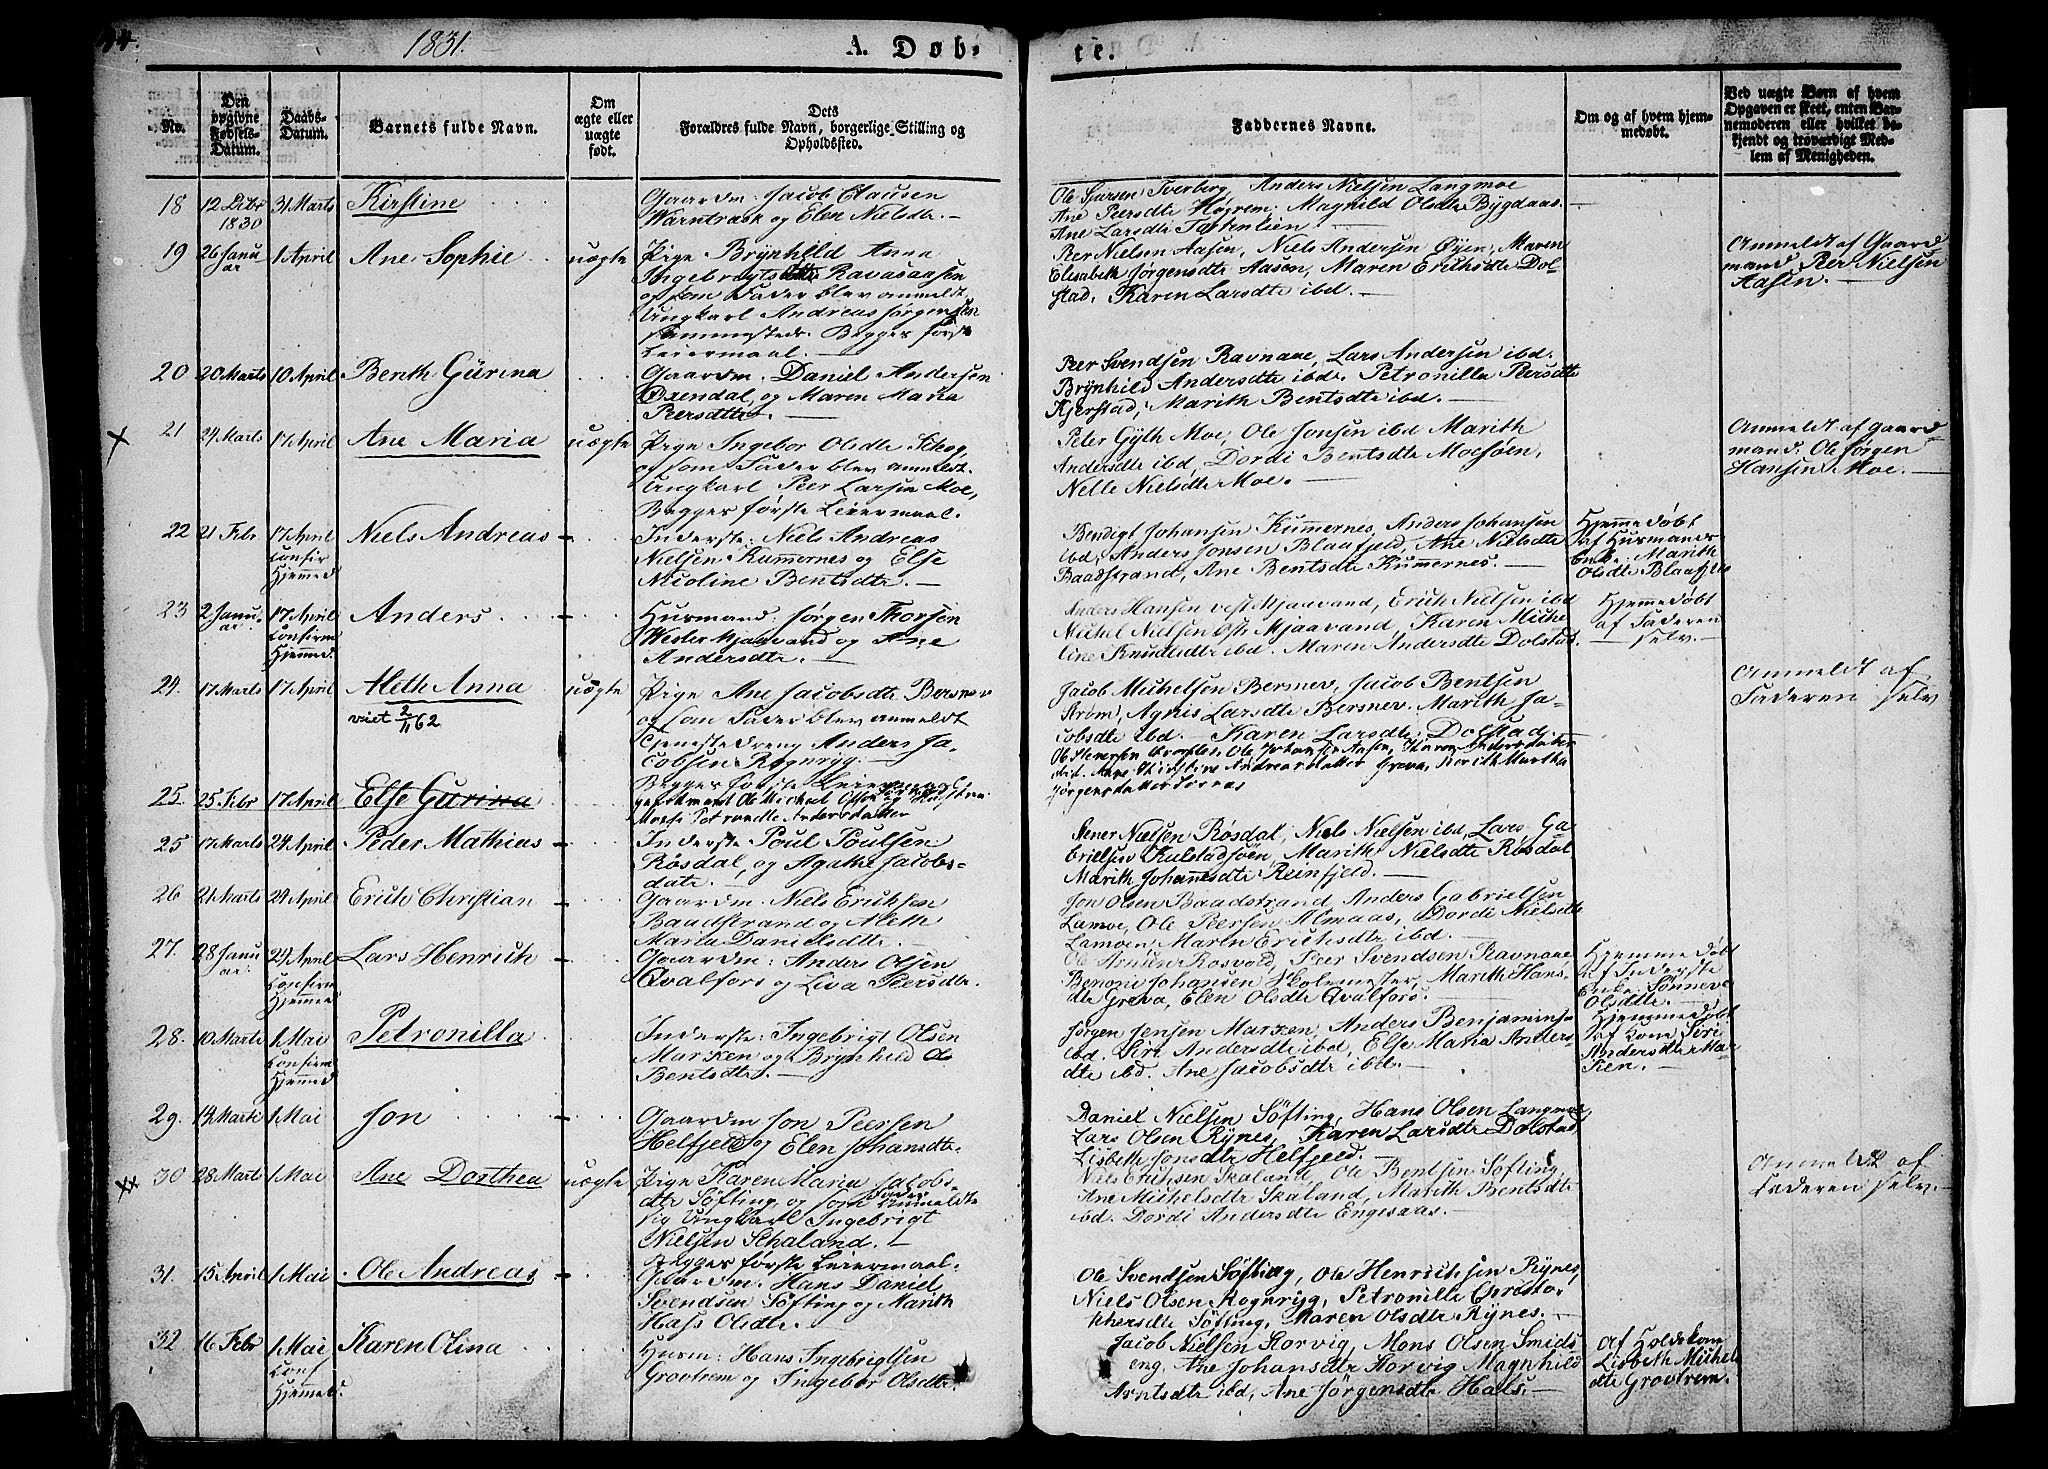 1831.
A. Døbte.
No.
Den opgivne Fødsels-Datum.
Daabs-Datum.
Barnets fulde Navn.
Om ægte eller uægte født.
Dets Forældres fulde Navn, borgerlige Stilling og Opholdssted.
Faddernes Navne.
Om og af hvem hjemmedøbt.
Ved uægte Børn af hvem Opgaven er skeet, enten Barnemoderen eller hvilket bekjendt og troværdigt Medlem af Menigheden.
18 12 Debr 1830 31 Marts Kirstine
Gaardm: Jacob Clausen
og Elen Nielsdtr.
Ole Sjursen Tverberg, Anders Nielsen Langmoe
Ane Peersdtr Høgrem. Magnild Olsdtr Bygdaas.
Ane Larsdtr
19 26 Januar 1 April Ane Sophie uægte
Pige Brynhild Anna
Ingebrigtsdtr Ravasaasen
og som Fader blev anmeldt
Ungkarl Andreas Jørgensen
sammesteds. Begges første
Leiermaal.
Per Nielsen Aasen, Niels Andersen Øyen, Maren
Elisabeth Jørgensdtr Aasen, Maren Erichsdtr Dol-
stad, Karen Larsdtr ibd.
Anmeldt af Gaard-
mand Per Nielsen
Aasen.
20 20 Marts 10 April Berith Gurina
Gaardm: Daniel Andersen
Oxendal, og Maren Maria
Peersdtr.
Peer Svendsen Ravnaae, Lars Andersen ibd.
Brynhild Andersdtr ibd. Petronilla Peersdtr
Kjerstad, Marith Bentsdtr ibd.
21 24 Marts 17 April Ane Maria uægte
Pige Ingebor Olsdtr Skog,
og som Fader blev anmeldt
Ungkarl Peer Larsen Moe,
Begges første Leiermaal.
Peter Gylth Moe, Ole Jonsen ibd Marith
Andersdtr ibd, Dordi Bentsdtr Moesøen,
Nelle Nielsdtr Moe.
Anmeldt af Gaard-
mand Ole Jørgen
Hansen Moe.
22 21 Febr 17 April Confir Hjemmed Niels Andreas
Inderste: Niels Andreas
Nielsen Kummernes og Else
Nicoline Bentsdtr.
Bendigt Johansen Kummernes, Anders Johansen
ibd, Anders Jonsen Blaafjeld, Ane Nielsdtr
Baadstrand, Ane Bentsdtr Kummernes.
Hjemmedøbt
af Husmands
Enke: Marith
Olsdtr Blaafjeld
23 2 Januar 17 April Confirm Hjemmed. Anders
Husmand: Jørgen Thorsen
Vester Mjaavand og Ane
Andersdtr.
Anders Hansen vest Mjaavand, Erich Nielsen ibd
Michel Nielsen Øst Mjaavand, Karen Miche
line Knudsdtr ibd. Maren Andersdtr Dolstad.
Hjemmedøbt
af Faderen
selv.
24. 17 Marts 17 April Aleth Anna uægte
viet 2/11 62
Pige Ane Jacobsdtr Bersnev
og som Fader blev anmeldt
Tjenestedreng Anders Ja-
cobsen Rognryg.
Begges første Leiermaal
Jacob Michelsen Bersnev, Jacob Bentsen
Strøm, Agnis Larsdtr Bersnev. Marith Ja-
cobsdtr ibd. Karen Larsdtr Dolstad.
Anmeldt af
Faderen selv
25. 25 Febr 17 April Else Gurina
25 17 Marts 24 April Peder Mathias
Inderste Poul Poulsen
Røsdal, og Agathe Jacobs-
datr.
Stener Nielsen Røsdal, Niels Nielsen ibd, Lars Ga-
brielsen Kulstadsjøen, Marith Nielsdtr Røsdal
Marith Johannesdtr Reinfjeld.
26 21 Marts 24 April Erich Christian
Gaardm: Niels Erichsen
Baadstrand og Aleth
Maria Danielsdtr.
Jon Olsen Baadstrand Anders Gabrielsen
Lamoe, Ole Peersen Almaas, Dordi Nielsdtr
Lamoen, Maren Erichsdtr ibd.
27. 28 Januar 24 April Confirm Hjemmed Lars Henrich
Gaardm: Anders Olsen
Qvalfors og Liva Peersdtr.
Ole Arntsen Rosvold, Peer Svendsen Ravnaae,
Benoni Johansen Skolemester, Marith Hans-
dtr Greva, Elen Olsdtr Qvalfors.
Hjemmedøbt
af Inderste
Enke Sønneve
Olsdtr.
28. 10 Marts 1 Mai Confirm Hjemmed Petronilla
Inderste: Ingebrigt Olsen
Marken og Brynhild
Bentsdtr.
Jørgen Jensen Marken, Anders Benjamins
ibd. Siri Andersdtr ibd, Else Maria Anders-
dtr ibd. Ane Jacobsdtr ibd.
Hjemmedøbt
af Kone Siri
Andersdtr Mar
ken.
29. 14 Marts 1 Mai Jon
Gaardm Jon Peersen
Helfjeld og Elen Johansdtr.
Daniel Nielsen Søfting, Hans Olsen Langmoe,
Lars Olsen Rynes, Karen Larsdtr Dolstad
Lisbeth Jonsdtr Helfjeld.
30 28 Marts 1 Mai Ane Dorthea uægte
Pige Karen Maria Jacobs-
dtr Søfting, og som Fader anmeldte
sig Ungkarl Ingebrigt
Nielsen Schaland.
Begges første Leiermaal.
Niels Erichsen Skaland, Ole Bentsen Søfting,
Ane Michelsdtr Skaland, Marith Bentsdtr
ibd. Dordi Andersdtr Engesaas.
Anmeldt af
Faderen selv.
31. 15 April 1 Mai Ole Andreas
Gaardm: Hans Daniel
Svendsen Søfting og Marith
Olsdtr.
Ole Svendsen Søfting, Ole Henrichsen Rynes,
Niels Olsen Rognryg, Petronille Christo-
phersdtr Søfting, Maren Olsdtr Rynes.
32 16 Febr 1 Mai Conf Hjemmed. Karen Olina
Husm: Hans Ingebrigtsen
Grovtrem og Ingebor Olsdtr.
Jacob Nielsen Storvig, Mons Olsen Smids-
eng, Ane Johansdtr Storvig Magnhild
Arntsdtr ibd, Ane Jørgensdtr Hals.
Af Holdskone
Lisbeth Michels
dtr Grovtrem.